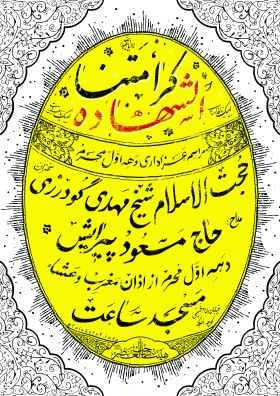 کرامتنا
الشهاده
مراسم عزاداری دهه اول محرم
سخنران
حجت الاسلام شیخ مهدی گودرزی
مداح:
حاج مسعود پیرایش
دهه اول محرم از اذان مغرب و عشاء
مسجد ساعت